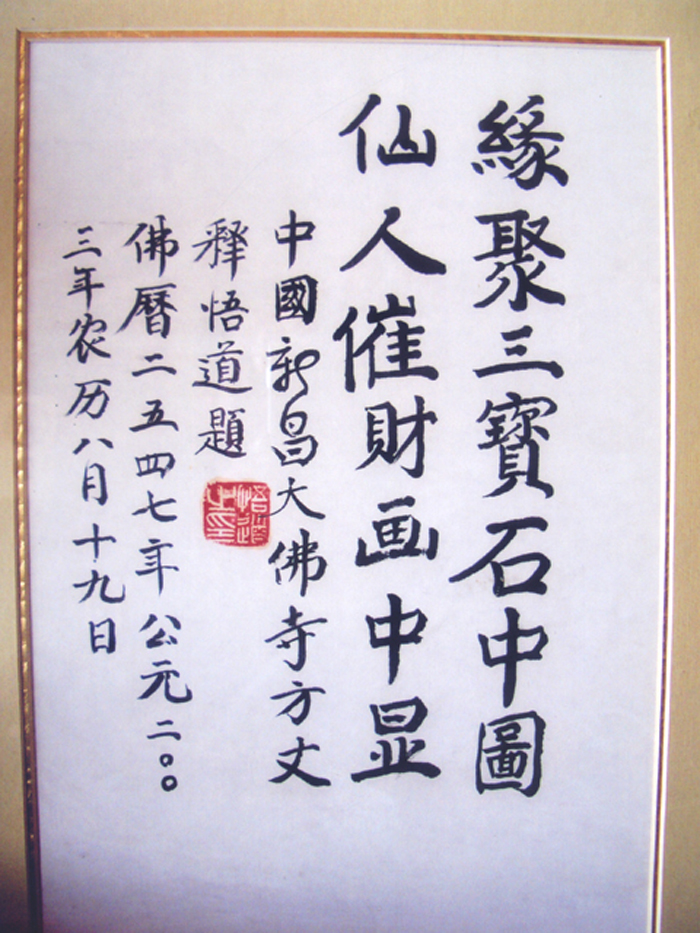 緣聚三寶石中圖
仙人催财画中显
中國新昌大佛寺方丈
釋悟道題
悟道之印
佛曆二五四七年公元二〇〇
三年农历八月十九日